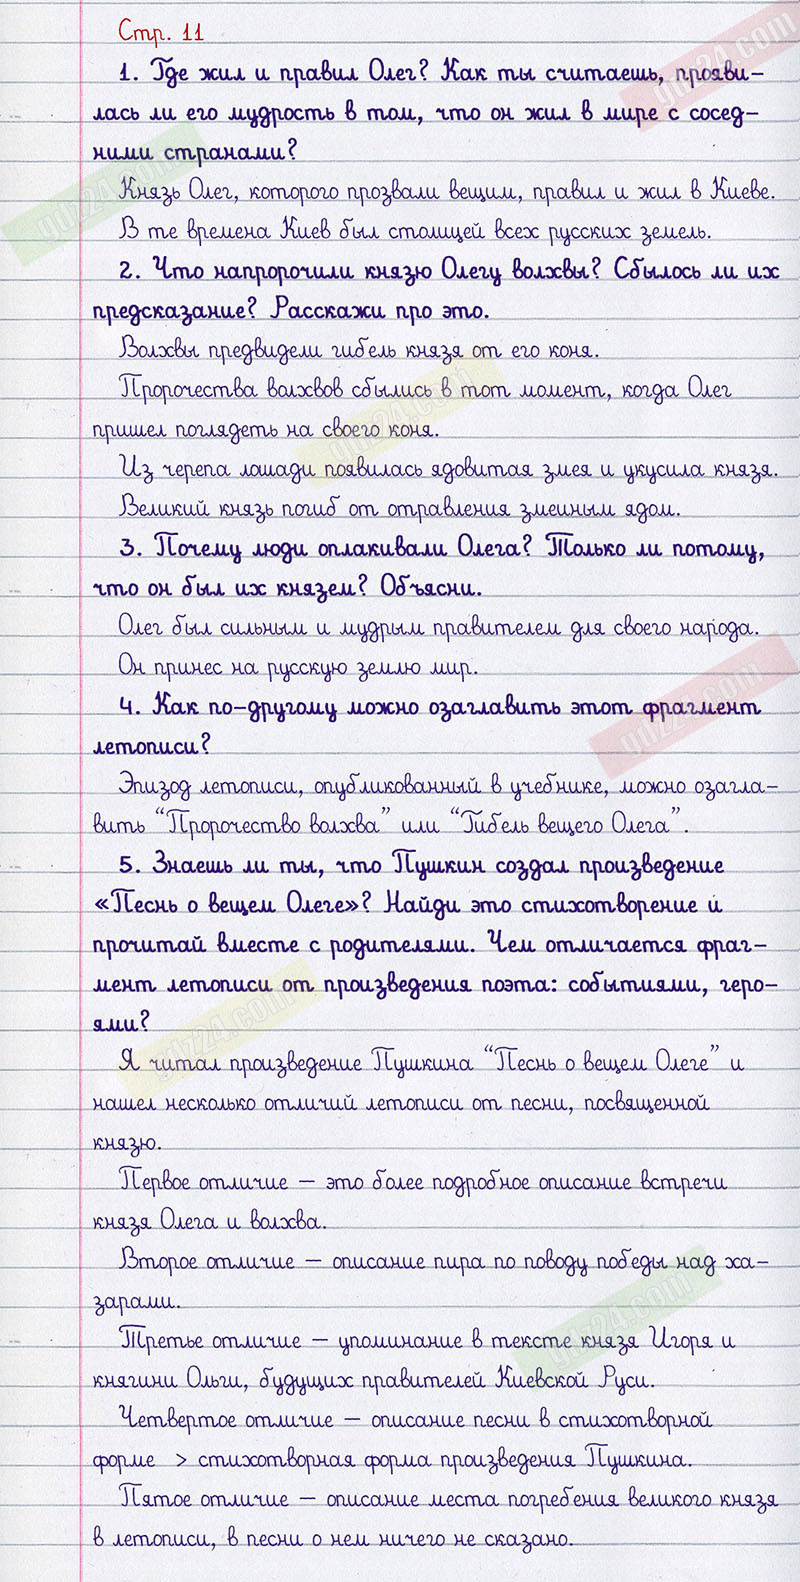 Стр. 11
1. Где жил и правил Олег? Как ты считаешь, прояви-
лась ли его мудрость в том, что он жил в мире с сосед-
ними странами?
Князь Олег, которого прозвали вещим, правил и жил в Киеве.
В те времена Киев был столицей всех русских земель.
2. Что напророчили князю Олегу волхвы? Сбылось ли их
предсказание? Расскажи про это.
Волхвы предвидели гибель князя от его коня.
Пророчества волхвов сбылись в тот момент, когда Олег
пришел поглядеть на своего коня.
Из черепа лошади появилась ядовитая змея и укусила князя.
Великий князь погиб от отравления змеиным ядом.
3. Почему люди оплакивали Олега? Только ли потому,
что он был их князем? Объясни.
Олег был сильным и мудрым правителем для своего народа.
Он принес на русскую землю мир.
4. Как по-другому можно озаглавить этот фрагмент
летописи?
Эпизод летописи, опубликованный в учебнике, можно озагла-
вить “Пророчество волхва” или “Гибель вещего Олега”.
5. Знаешь ли ты, что Пушкин создал произведение
«Песнь о вещем Олеге»? Найди это стихотворение и
прочитай вместе с родителями. Чем отличается фраг-
мент летописи от произведения поэта: событиями, геро-
ями?
Я читал произведение Пушкина “Песнь о вещем Олеге” и
нашел несколько отличий летописи от песни, посвященной
князю.
Первое отличие – это более подробное описание встречи
князя Олега и волхва.
Второе отличие – описание пира по поводу победы над ха-
зарами.
Третье отличие – упоминание в тексте князя Игоря и
княгини Ольги, будущих правителей Киевской Руси.
Четвертое отличие – описание песни в стихотворной
форме > стихотворная форма произведения Пушкина.
Пятое отличие – описание места погребения великого князя
в летописи, в песни о нем ничего не сказано.
gdz24.com
gdz24.com
gdz24.com
gdz24.com
gdz24.com
gdz24.com